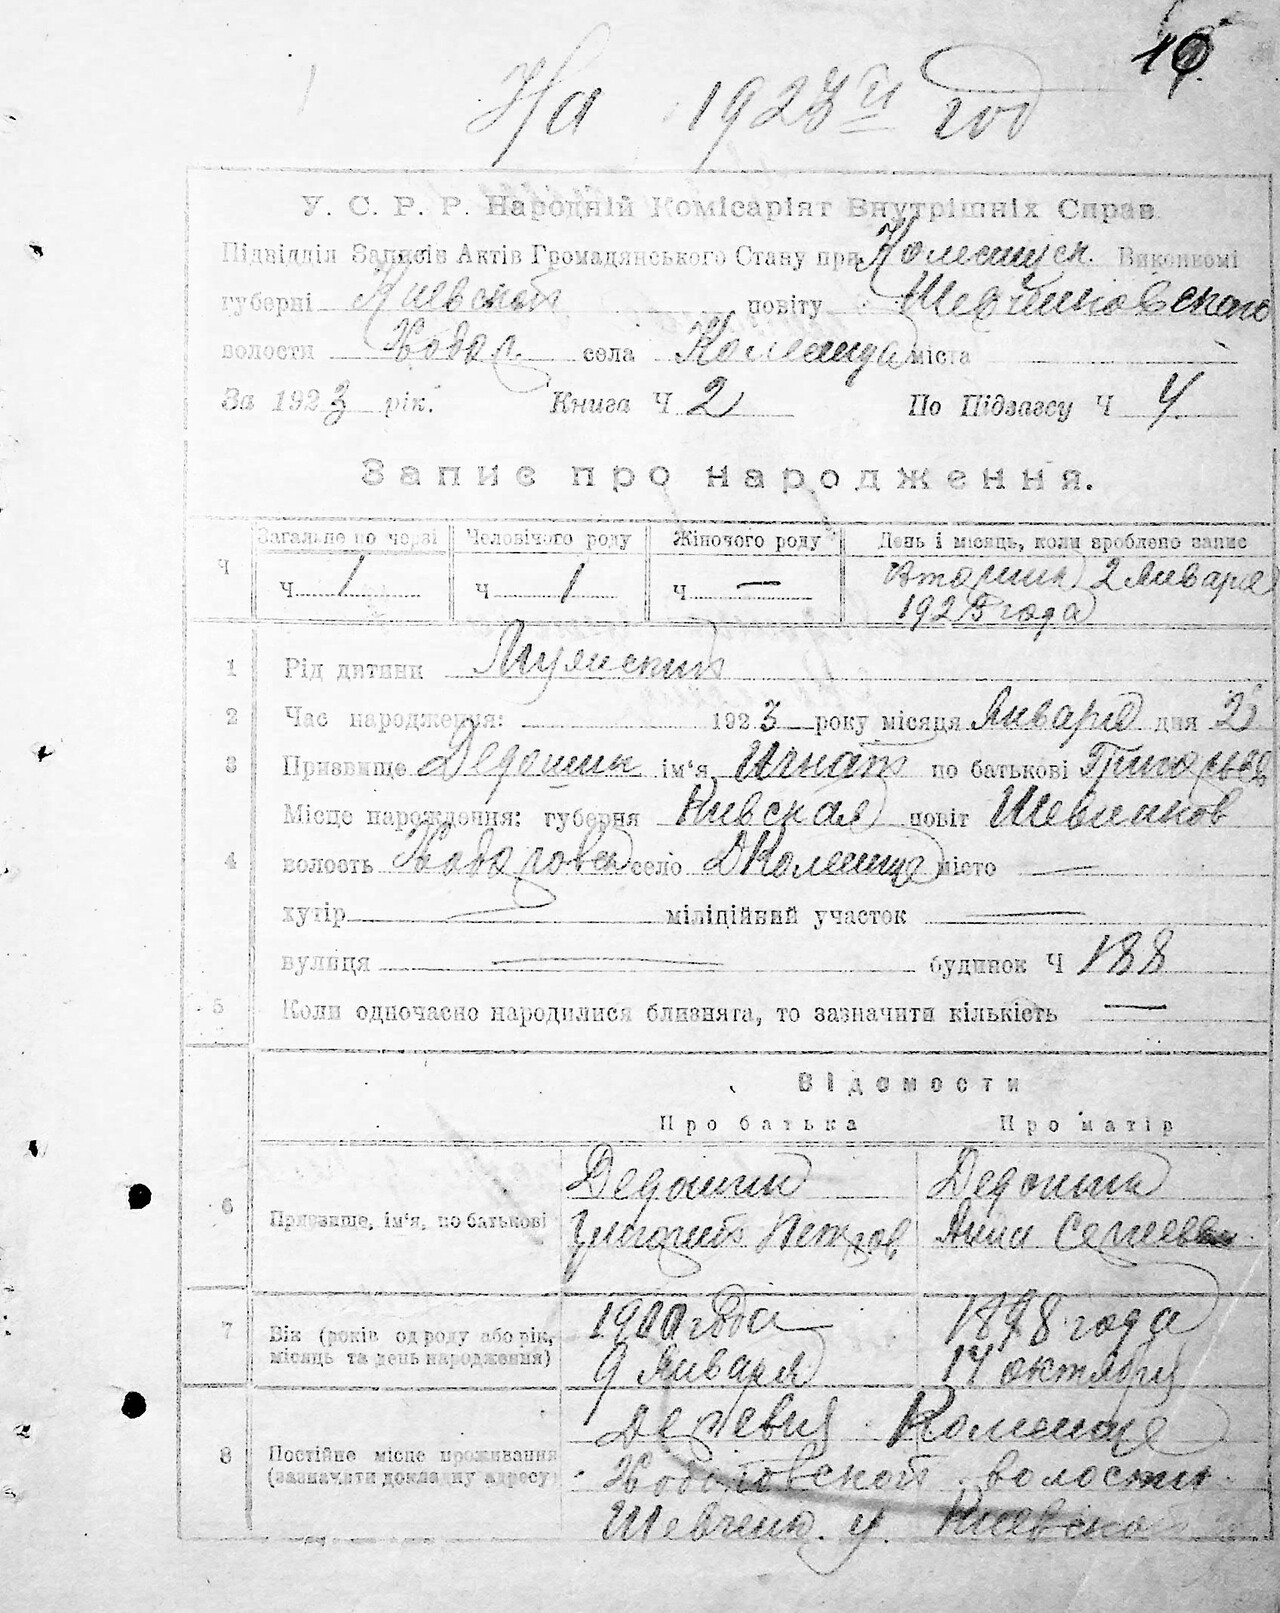 10
На 1923й год
У. С. Р. Р. Народній Комісаріят Внутрішніх Справ
Підвідділ Записів Актів Громадянського Стану при Виконкомі
губерні Киевской повіту
волости Ходор. села міста
За 1923 рік. Книга Ч 2 По Підзагсу Ч 4
Запис про народження.
Ч Загальне по черзі Человічого роду Жіночого роду День і місяць, коли зроблено запис
Ч 1 Ч 1 Ч — Вторник 2 Января
1923 года
1 Рід дитини Мужской
2 Час народження: 1923 року місяця Января дня 2
3 Призвище ім'я Игнат по батькові Григорьев
Місце народження: губерня Киевская повіт Шевченков
4 волость Ходоровск село місто —
хутір — міліційний участок —
вулиця — будинок Ч 188
5 Коли одночасно народилися близнята, то зазначити кількість —
Відомости
Про батька Про матір
6 Призвище, ім'я, по батькові
Григорий Петров Анна Сергеевна
7 Вік (років од роду або рік, місяць та день народження)
года 1898 года
9 Января 14 октября
8 Постійне місце проживання (зазначити докладну адресу)
Деревня
Ходоровской волости
Шевченк. у. Киевской